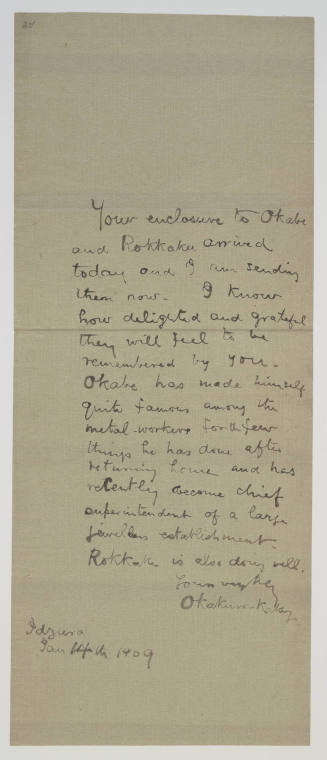 Your enclosure to Okabe
and Rokkaku arrived
today and I am sending
them now. I know
how delighted and grateful
they will feel to be
remembered by you.
Okabe has made himself
quite famous among the
metal-workers for the few
things he has done after
returning home and has
recently become chief
superintendent of a large
jewellers establishment.
Rokkaku is also doing well.
Yours very truly
Okakura-Kakuzo
Idzura
Jan 1909